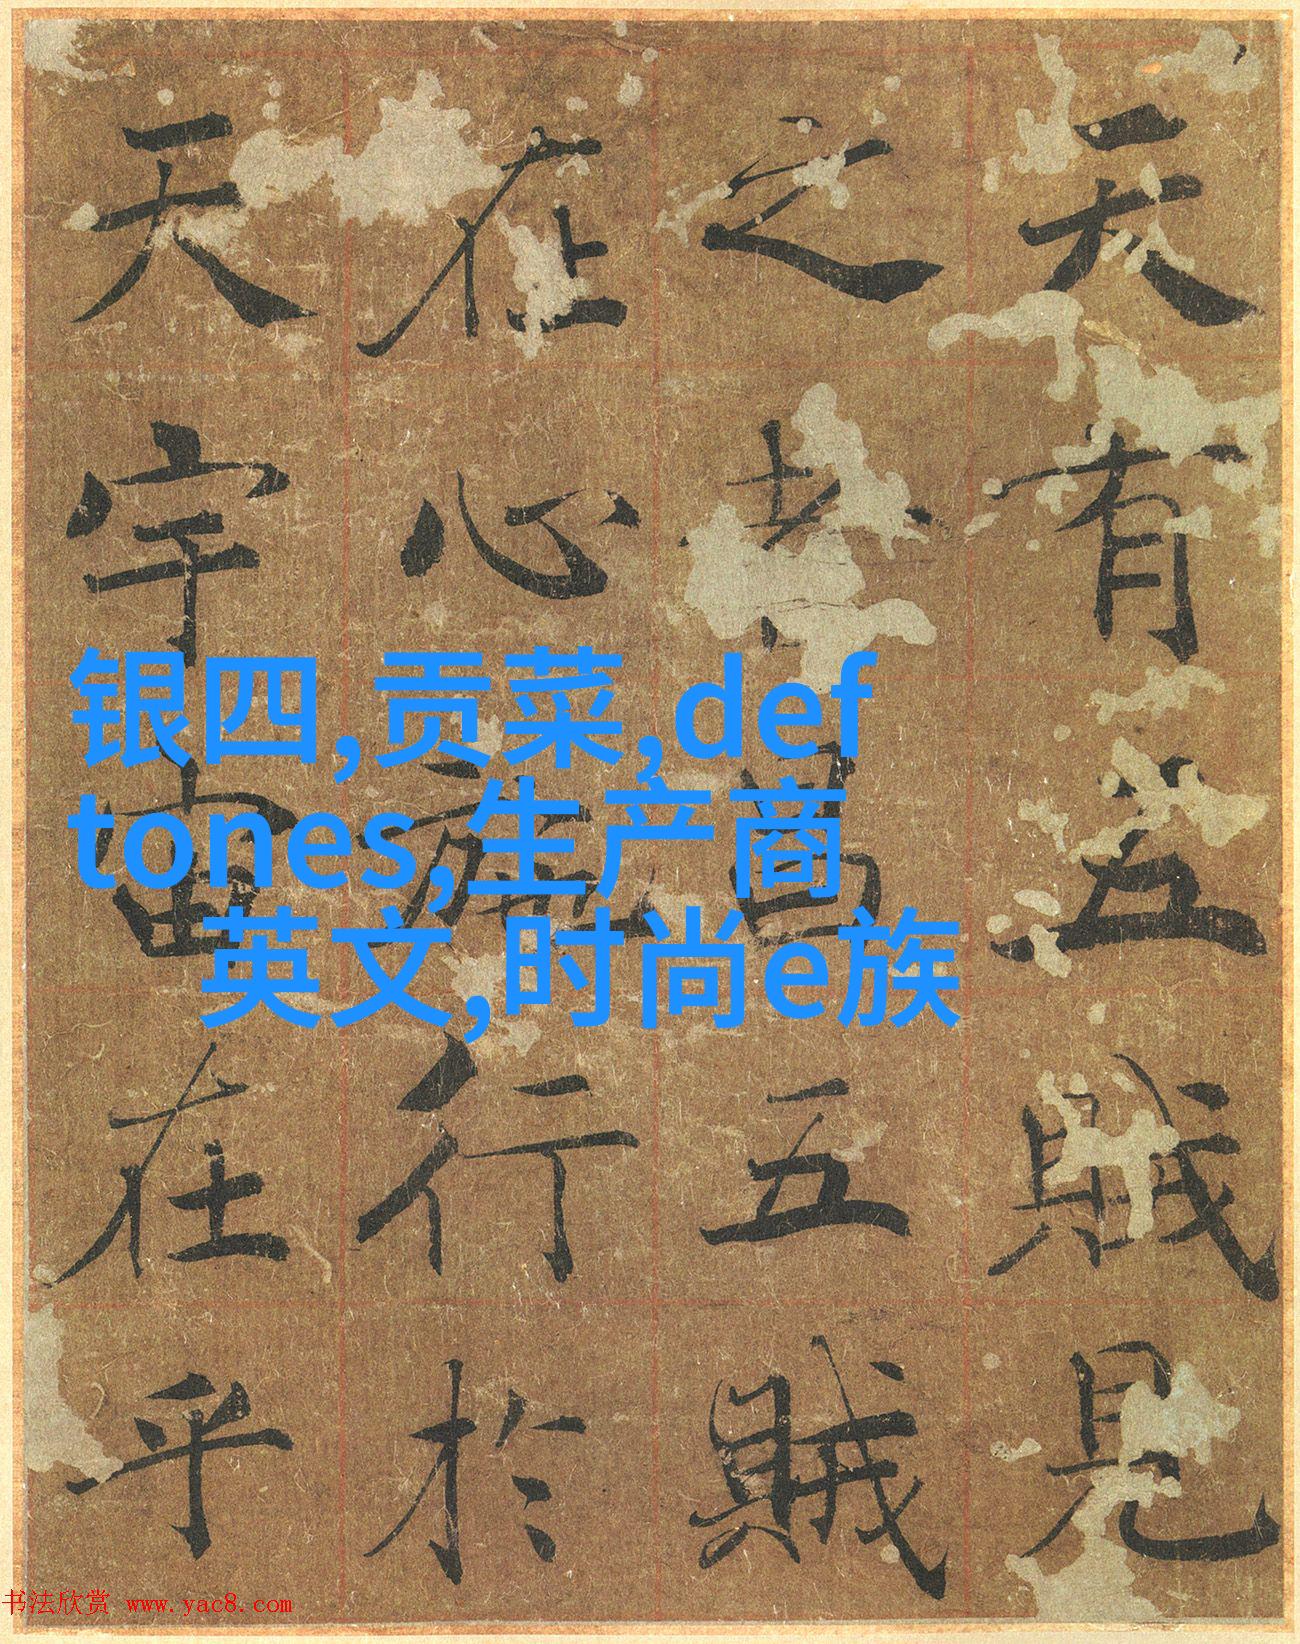 天有五賊見
之者昌五賊
在心施行於
天宇宙在乎
银四,贡菜,def
tones,生产商
英文,时尚e族
书法欣赏 www.yac8.com